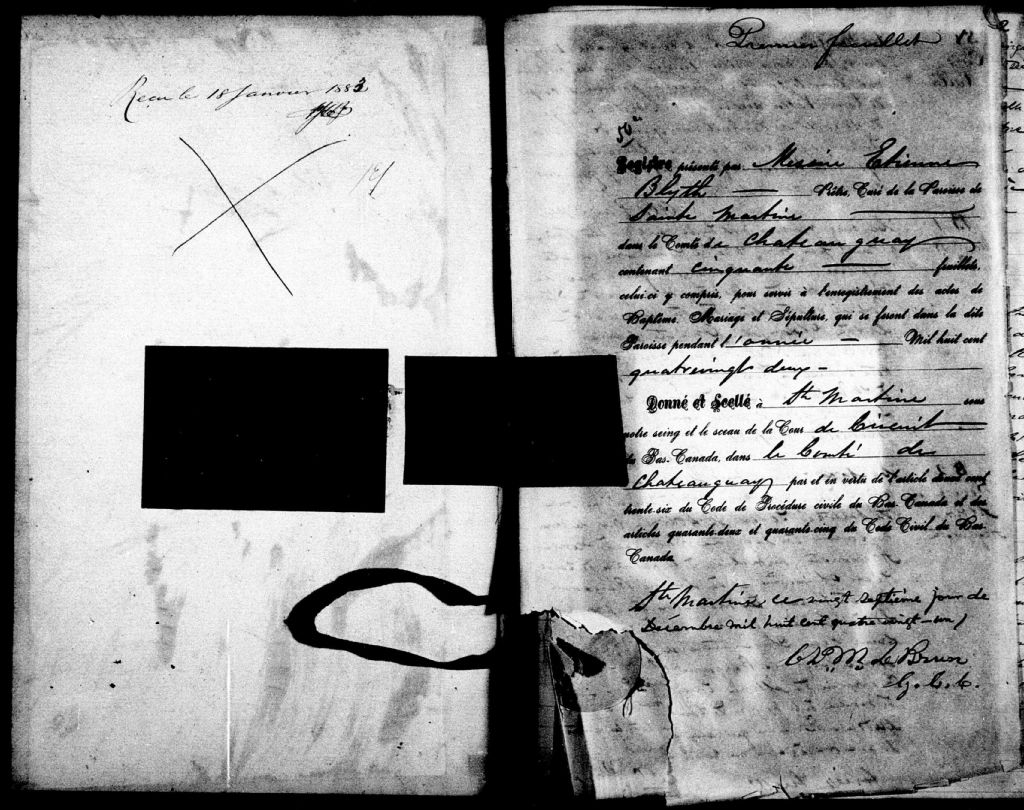 Recu le 18 Janvier 1883
Premier feuillet
50
Registre présenté par Messire Etienne
Blyth — Prêtre, Curé de la Paroisse de
Sainte Martine
dans le Comté de Chateauguay
contenant cinquante — feuillets,
celui-ci y compris, pour servir à l'enregistrement des actes de
Baptême, Mariage et Sépulture, qui se feront dans la dite
Paroisse pendant l'année — Mil huit cent
quatrevingt deux -
Donné et Scellé à Ste Martine sous
notre seing et le sceau de la Cour de Circuit
du Bas-Canada, dans le Comté de
Chateauguay par et en vertu de l'article
trente-six du Code de Procédure civile du Bas-Canada et des
articles quarante-deux et quarante-cinq du Code Civil du Bas-
Canada
Ste Martine ce vingt septieme jour de
Décembre mil huit cent quatre vingt-un
Le Brun
G. C. C.